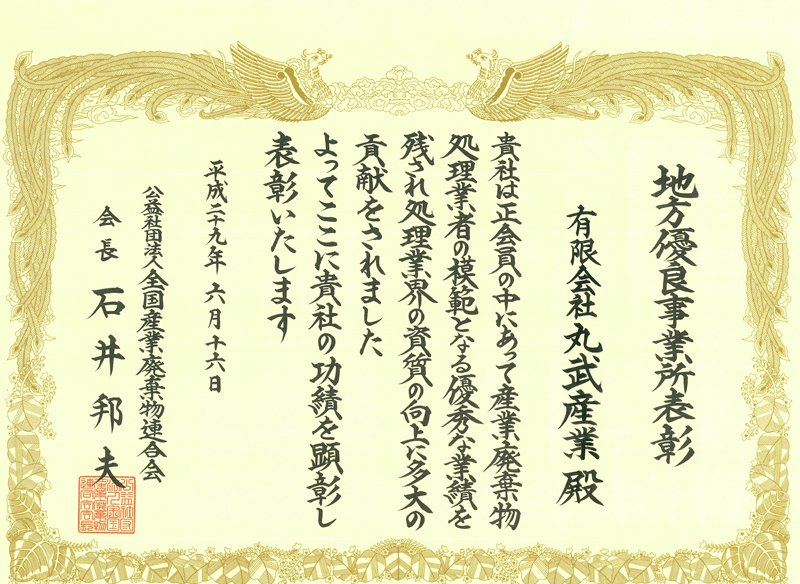 地方優良事業所表彰
有限会社丸武産業殿
貴社は正会員の中にあって産業廃棄物
処理業者の模範となる優秀な業績を
残され処理業界の資質の向上に多大の
貢献をされました
よってここに貴社の功績を顕彰し
表彰いたします
平成二十九年六月十六日
公益社団法人全国産業廃棄物連合会
会長 石井邦夫